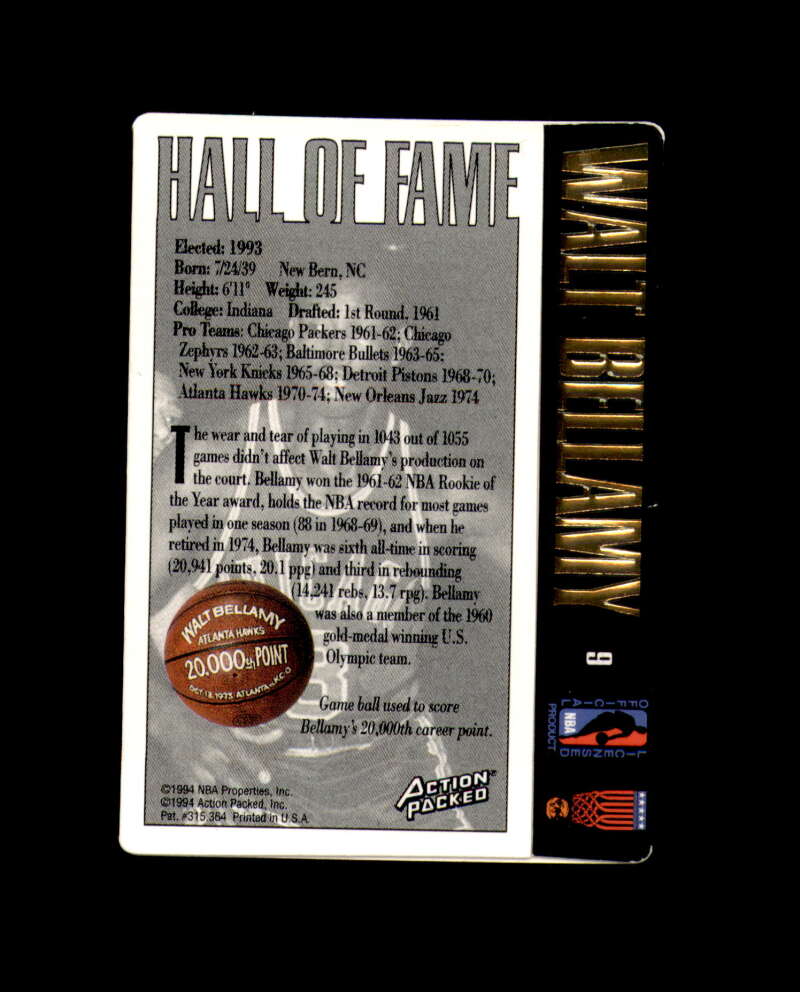 HALL OF FAME
Elected: 1993
Born: 7/24/39 New Bern, NC
Height: 6'11" Weight: 245
College: Indiana Drafted: 1st Round, 1961
Pro Teams: Chicago Packers 1961-62; Chicago
Zephyrs 1962-63; Baltimore Bullets 1963-65;
New York Knicks 1965-68; Detroit Pistons 1968-70;
Atlanta Hawks 1970-74; New Orleans Jazz 1974
The wear and tear of playing in 1043 out of 1055
games didn't affect Walt Bellamy's production on
the court. Bellamy won the 1961-62 NBA Rookie of
the Year award, holds the NBA record for most games
played in one season (88 in 1968-69), and when he
retired in 1974, Bellamy was sixth all-time in scoring
(20,941 points, 20.1 ppg) and third in rebounding
(14,241 rebs, 13.7 rpg). Bellamy
was also a member of the 1960
gold-medal winning U.S.
Olympic team.
WALT BELLAMY
ATLANTA HAWKS
20,000th POINT
OCT 12, 1973 ATLANTA
Game ball used to score
Bellamy's 20,000th career point.
©1994 NBA Properties, Inc.
©1994 Action Packed, Inc.
Pat. #315,364 Printed in U.S.A.
ACTION
PACKED
WALT BELLAMY
9
OFFICIAL
LICENSED
NBA
PRODUCT